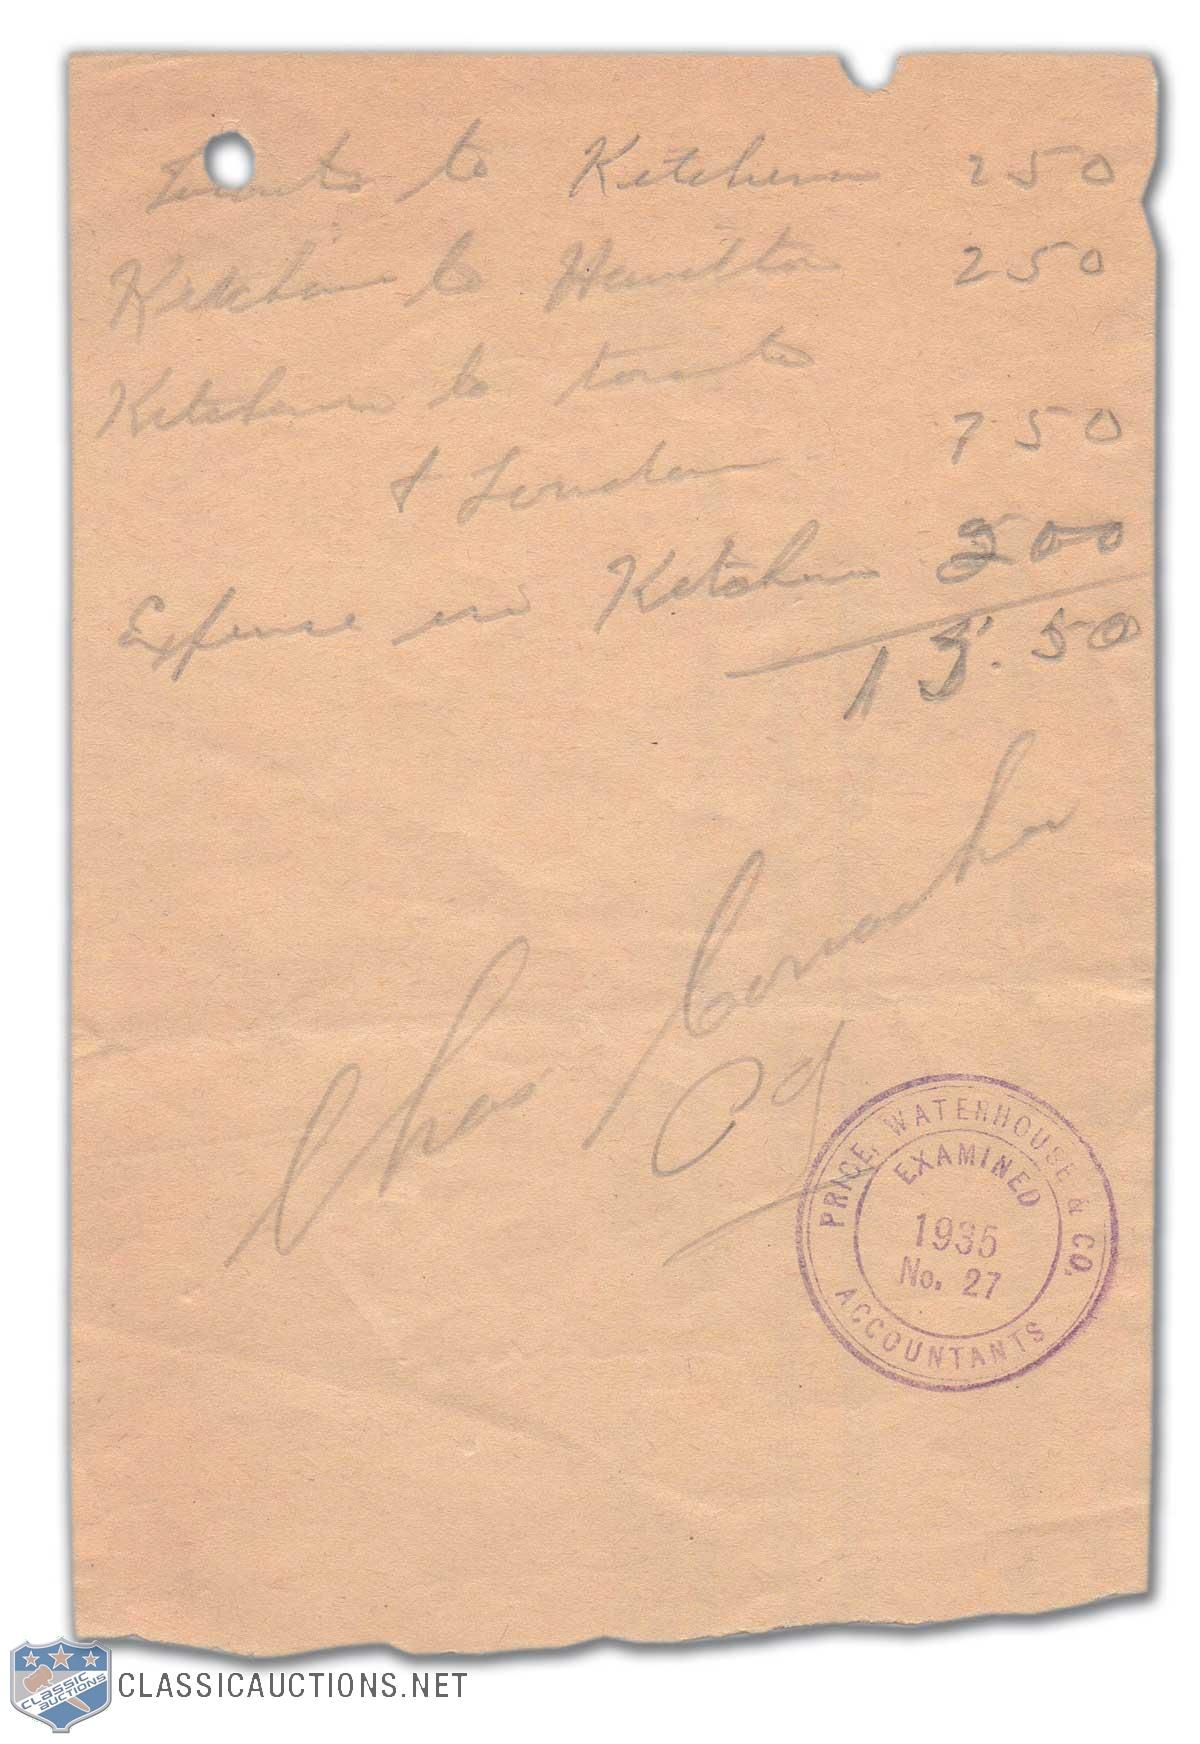 Toronto to Kitchener 250
Kitchener to Hamilton 250
Kitchener to toronto
& London 750
Expense in Kitchener 200
13.50
Chas Conacher
PRICE, WATERHOUSE & CO.
EXAMINED
1935
No. 27
ACCOUNTANTS
CLASSIC AUCTIONS
CLASSICAUCTIONS.NET